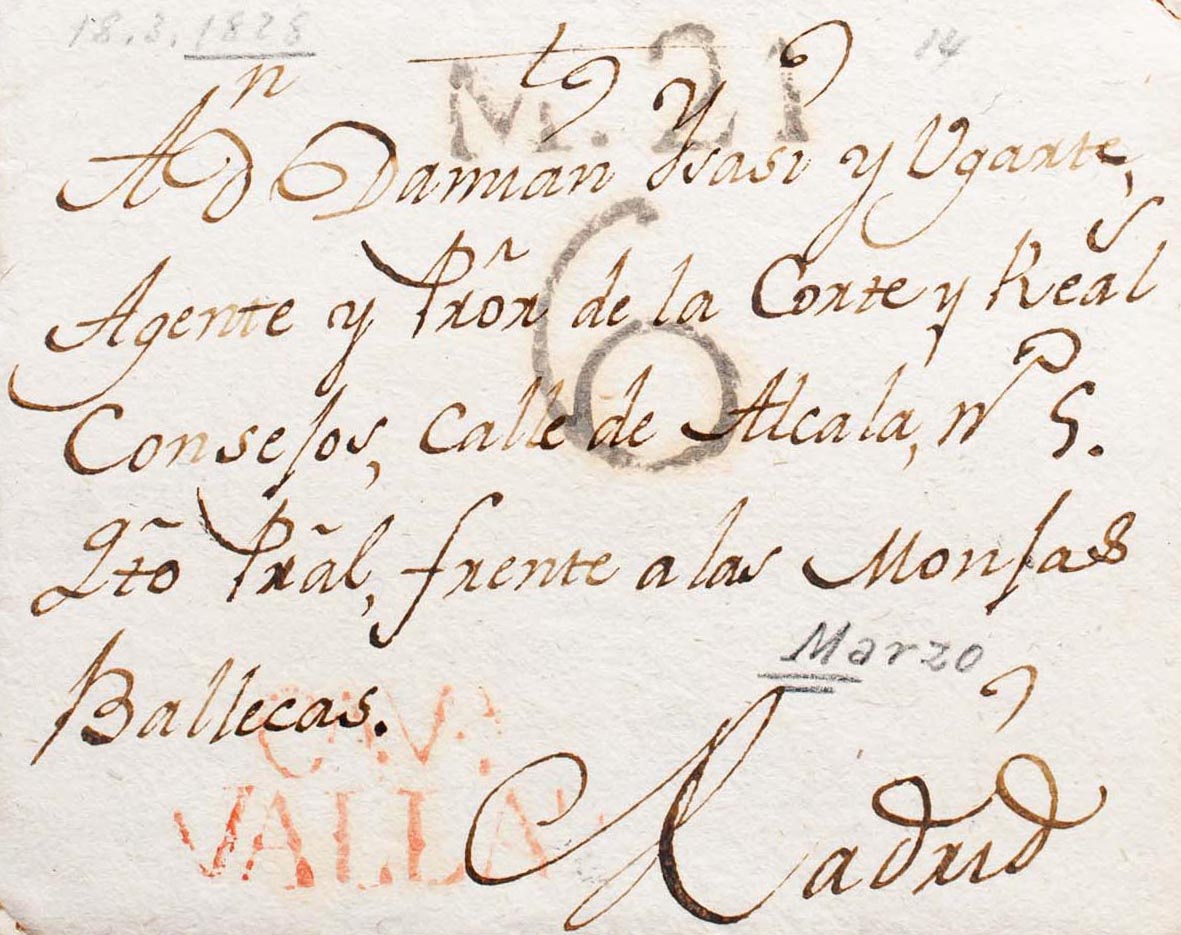 18.3.1828
14
M. 21
A dn Damian Ysasi y Ugarte,
6
Agente y Prõr de la Corte y Reals
Consejos, calle de Alcala, no 5.
Qto Prãl, frente a las Monjas
Ballecas.
Marzo
C.V.
VALLA
Madrid